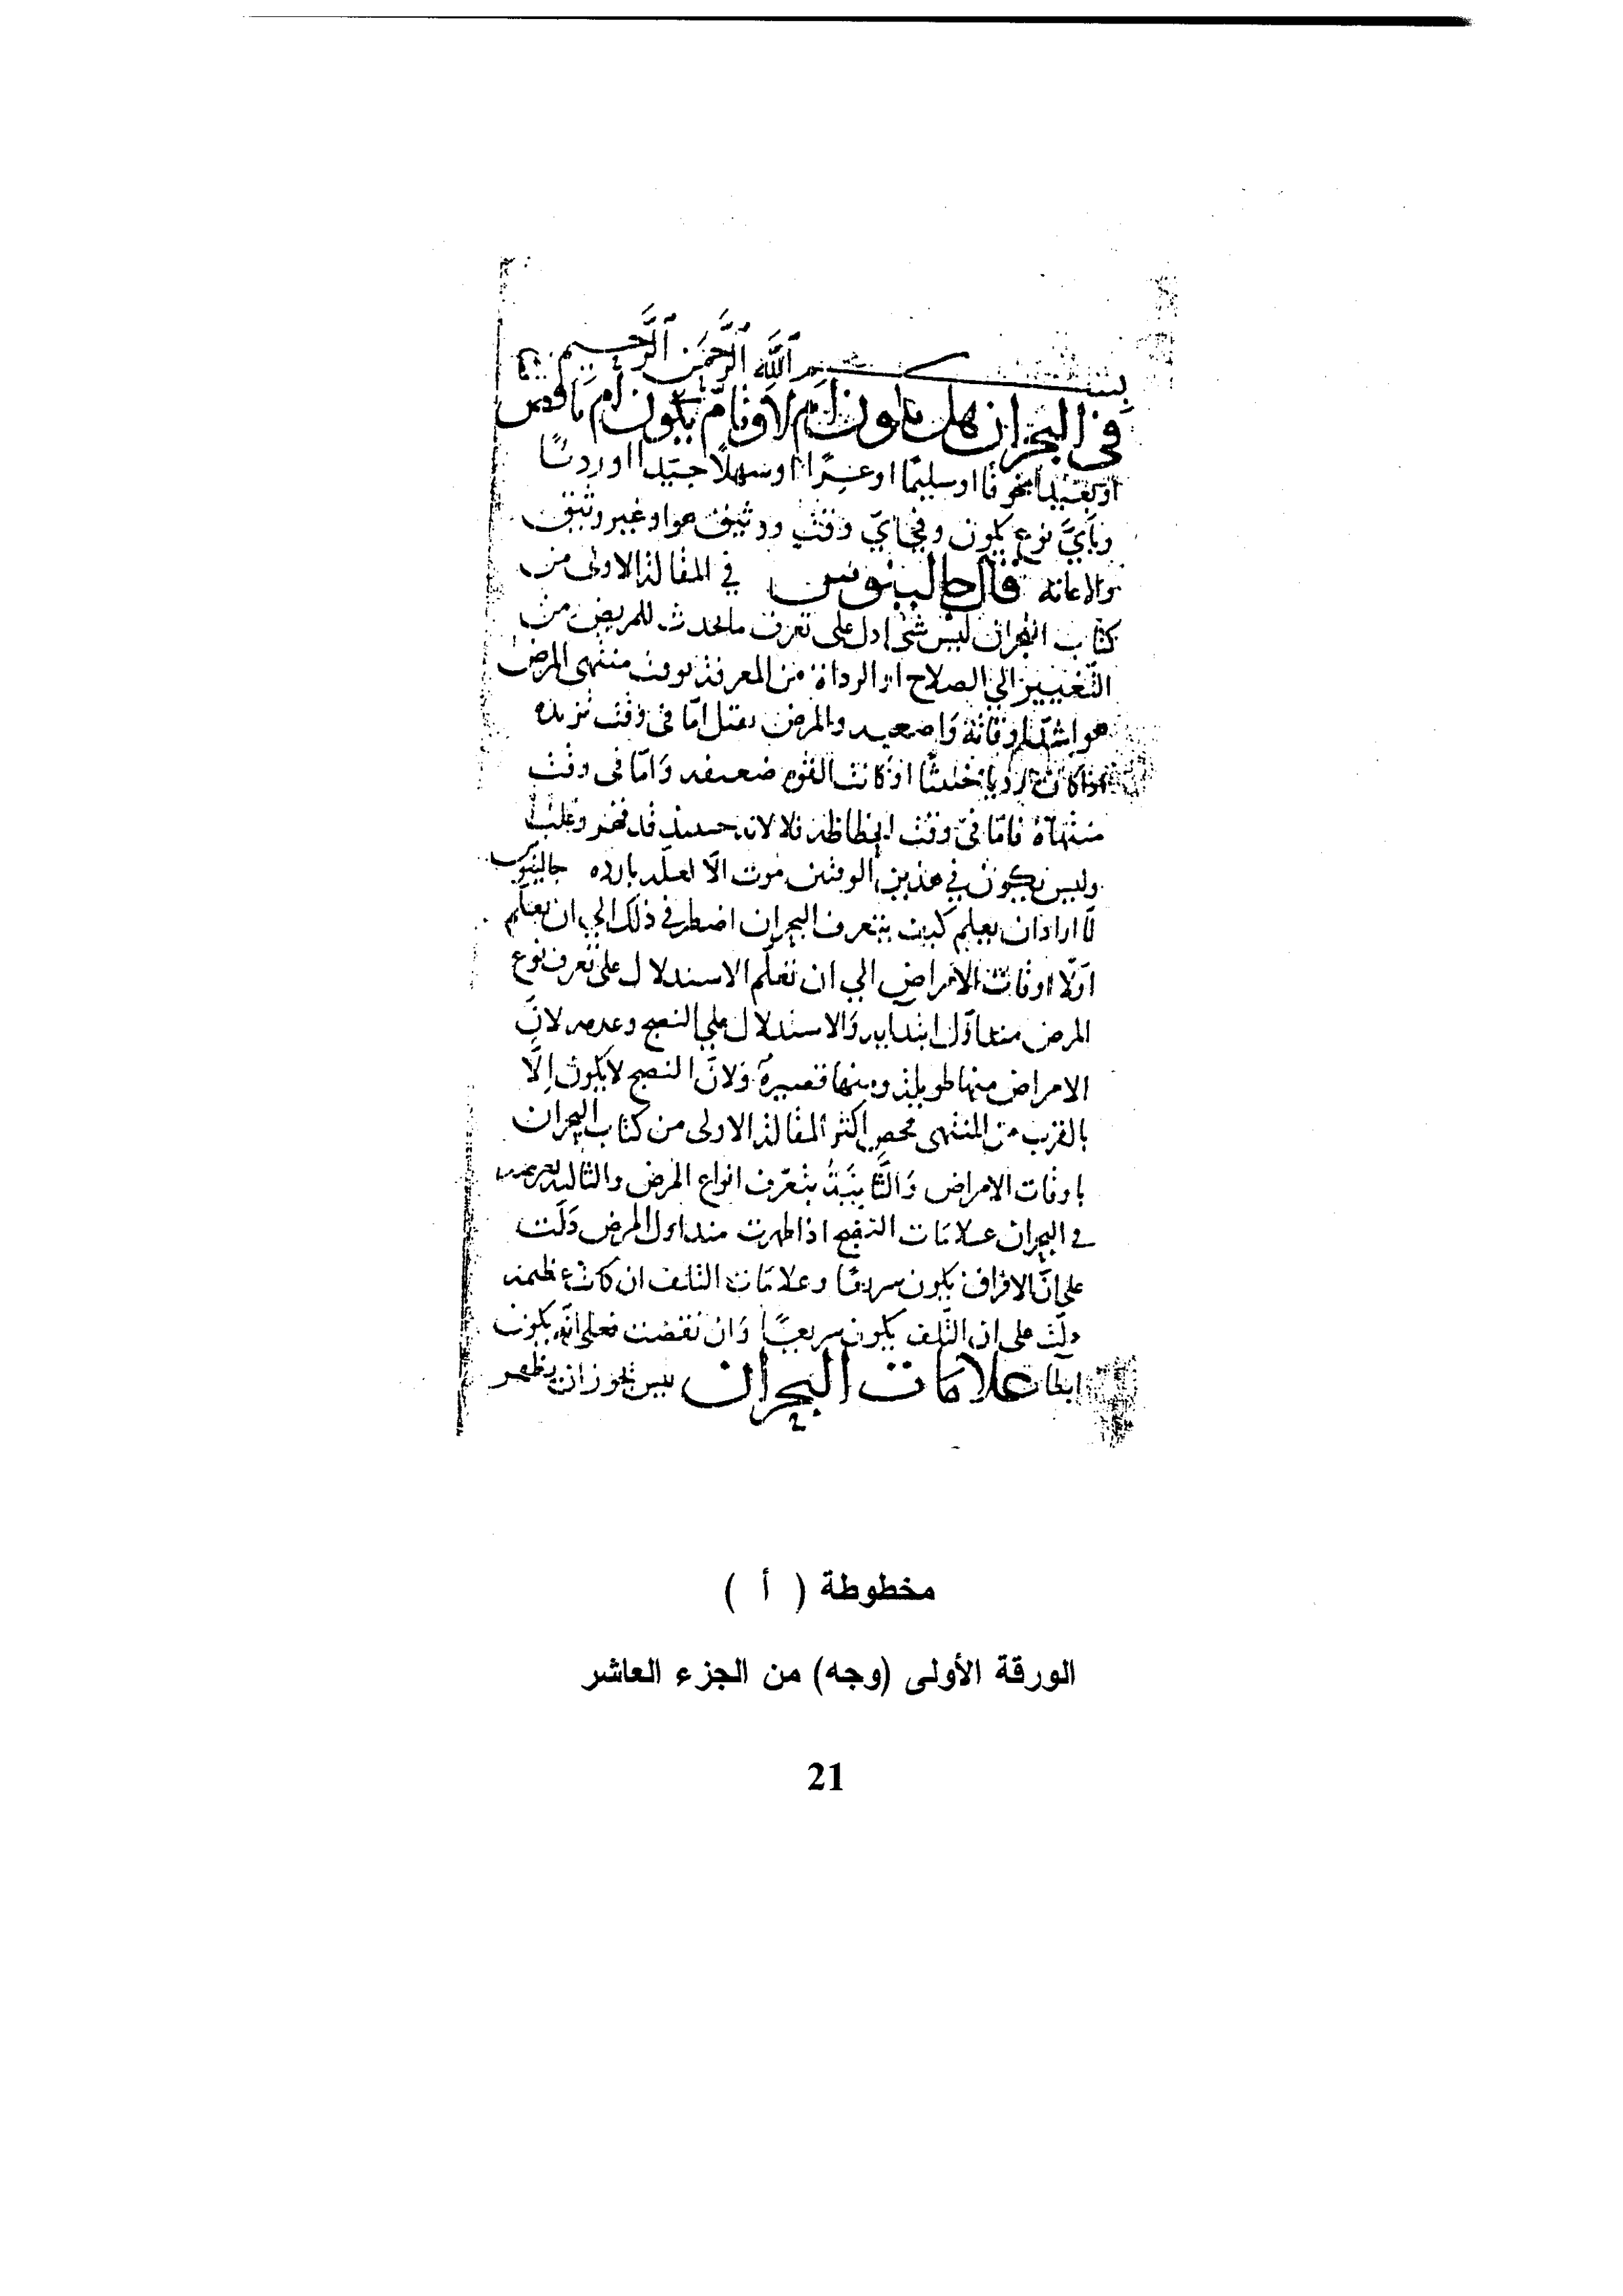 بسم الله الرحمن الرحيم
في البحران هل يكون ام لا وتام يكون ام ناقص
او سليما او عسرا او سهلا جيدا او رديا
وبأي نوع يكون وفي اي وقت وثيق هو او غير وثيق
قال جالينوس في المقالة الاولى من
كتاب البحران ليس شئ ادل على تعرف ما يحدث للمريض من
التغيير الي الصلاح او الرداة من المعرفة بوقت منتهى المرض
هو اشد اوقاته واصعبه والمرض يقتل اما في وقت تزيده
اذا كان رديا خبيثا او كانت القوة ضعيفه واما في وقت
منتهاه فاما في وقت انحطاطه فلا لانه حينيذ قد قهر وغلب
وليس يكون في هذين الوقتين موت الا لعله بارده جالينوس
لما اراد ان يعلم كيف يتعرف البحران اضطر في ذلك الي ان يعلم
اولا اوقات الامراض الي ان تعلم الاستدلال على تعرف نوع
المرض منذ اول ابتدايه والاستدلال علي النضج وعدمه لان
الامراض منها طويلة ومنها قصيرة ولان النضج لا يكون الا
بالقرب من المنتهى اكثر المقالة الاولى من كتاب البحران
باوقات الامراض والثانية بتعرف انواع المرض والثالثة
في البحران علامات النضج اذا ظهرت منذ اول المرض دلت
علي ان الافراق يكون سريعا وعلامات التلف ان كانت عظيمة
دلت على ان التلف يكون سريعا وان نقصت فعلى انه يكون
ابطا علامات البحران ليس يجوز ان يظهر
مخطوطة ( أ )
الورقة الأولى (وجه) من الجزء العاشر
21